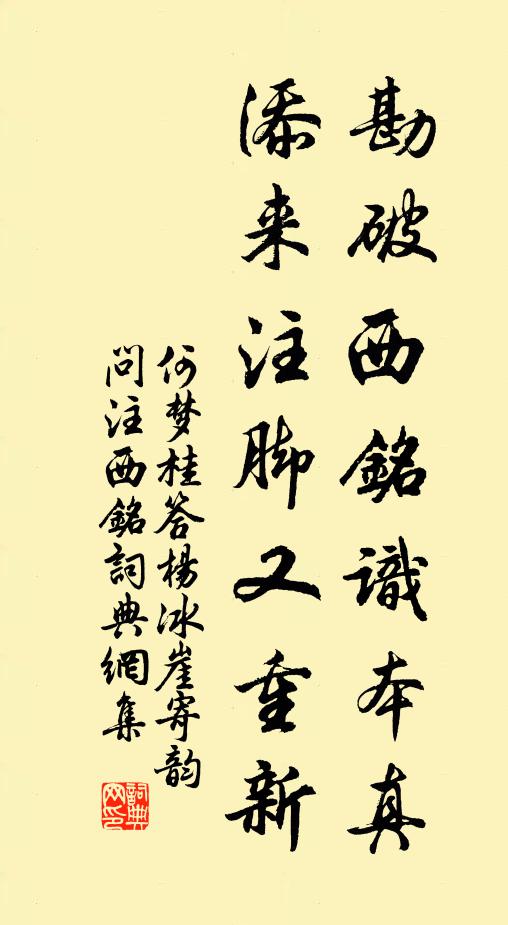 勘破西銘識本真
添来注脚又重新
何梦桂答楊冰崖寄韵
問注西銘詞典網集
詞典网印